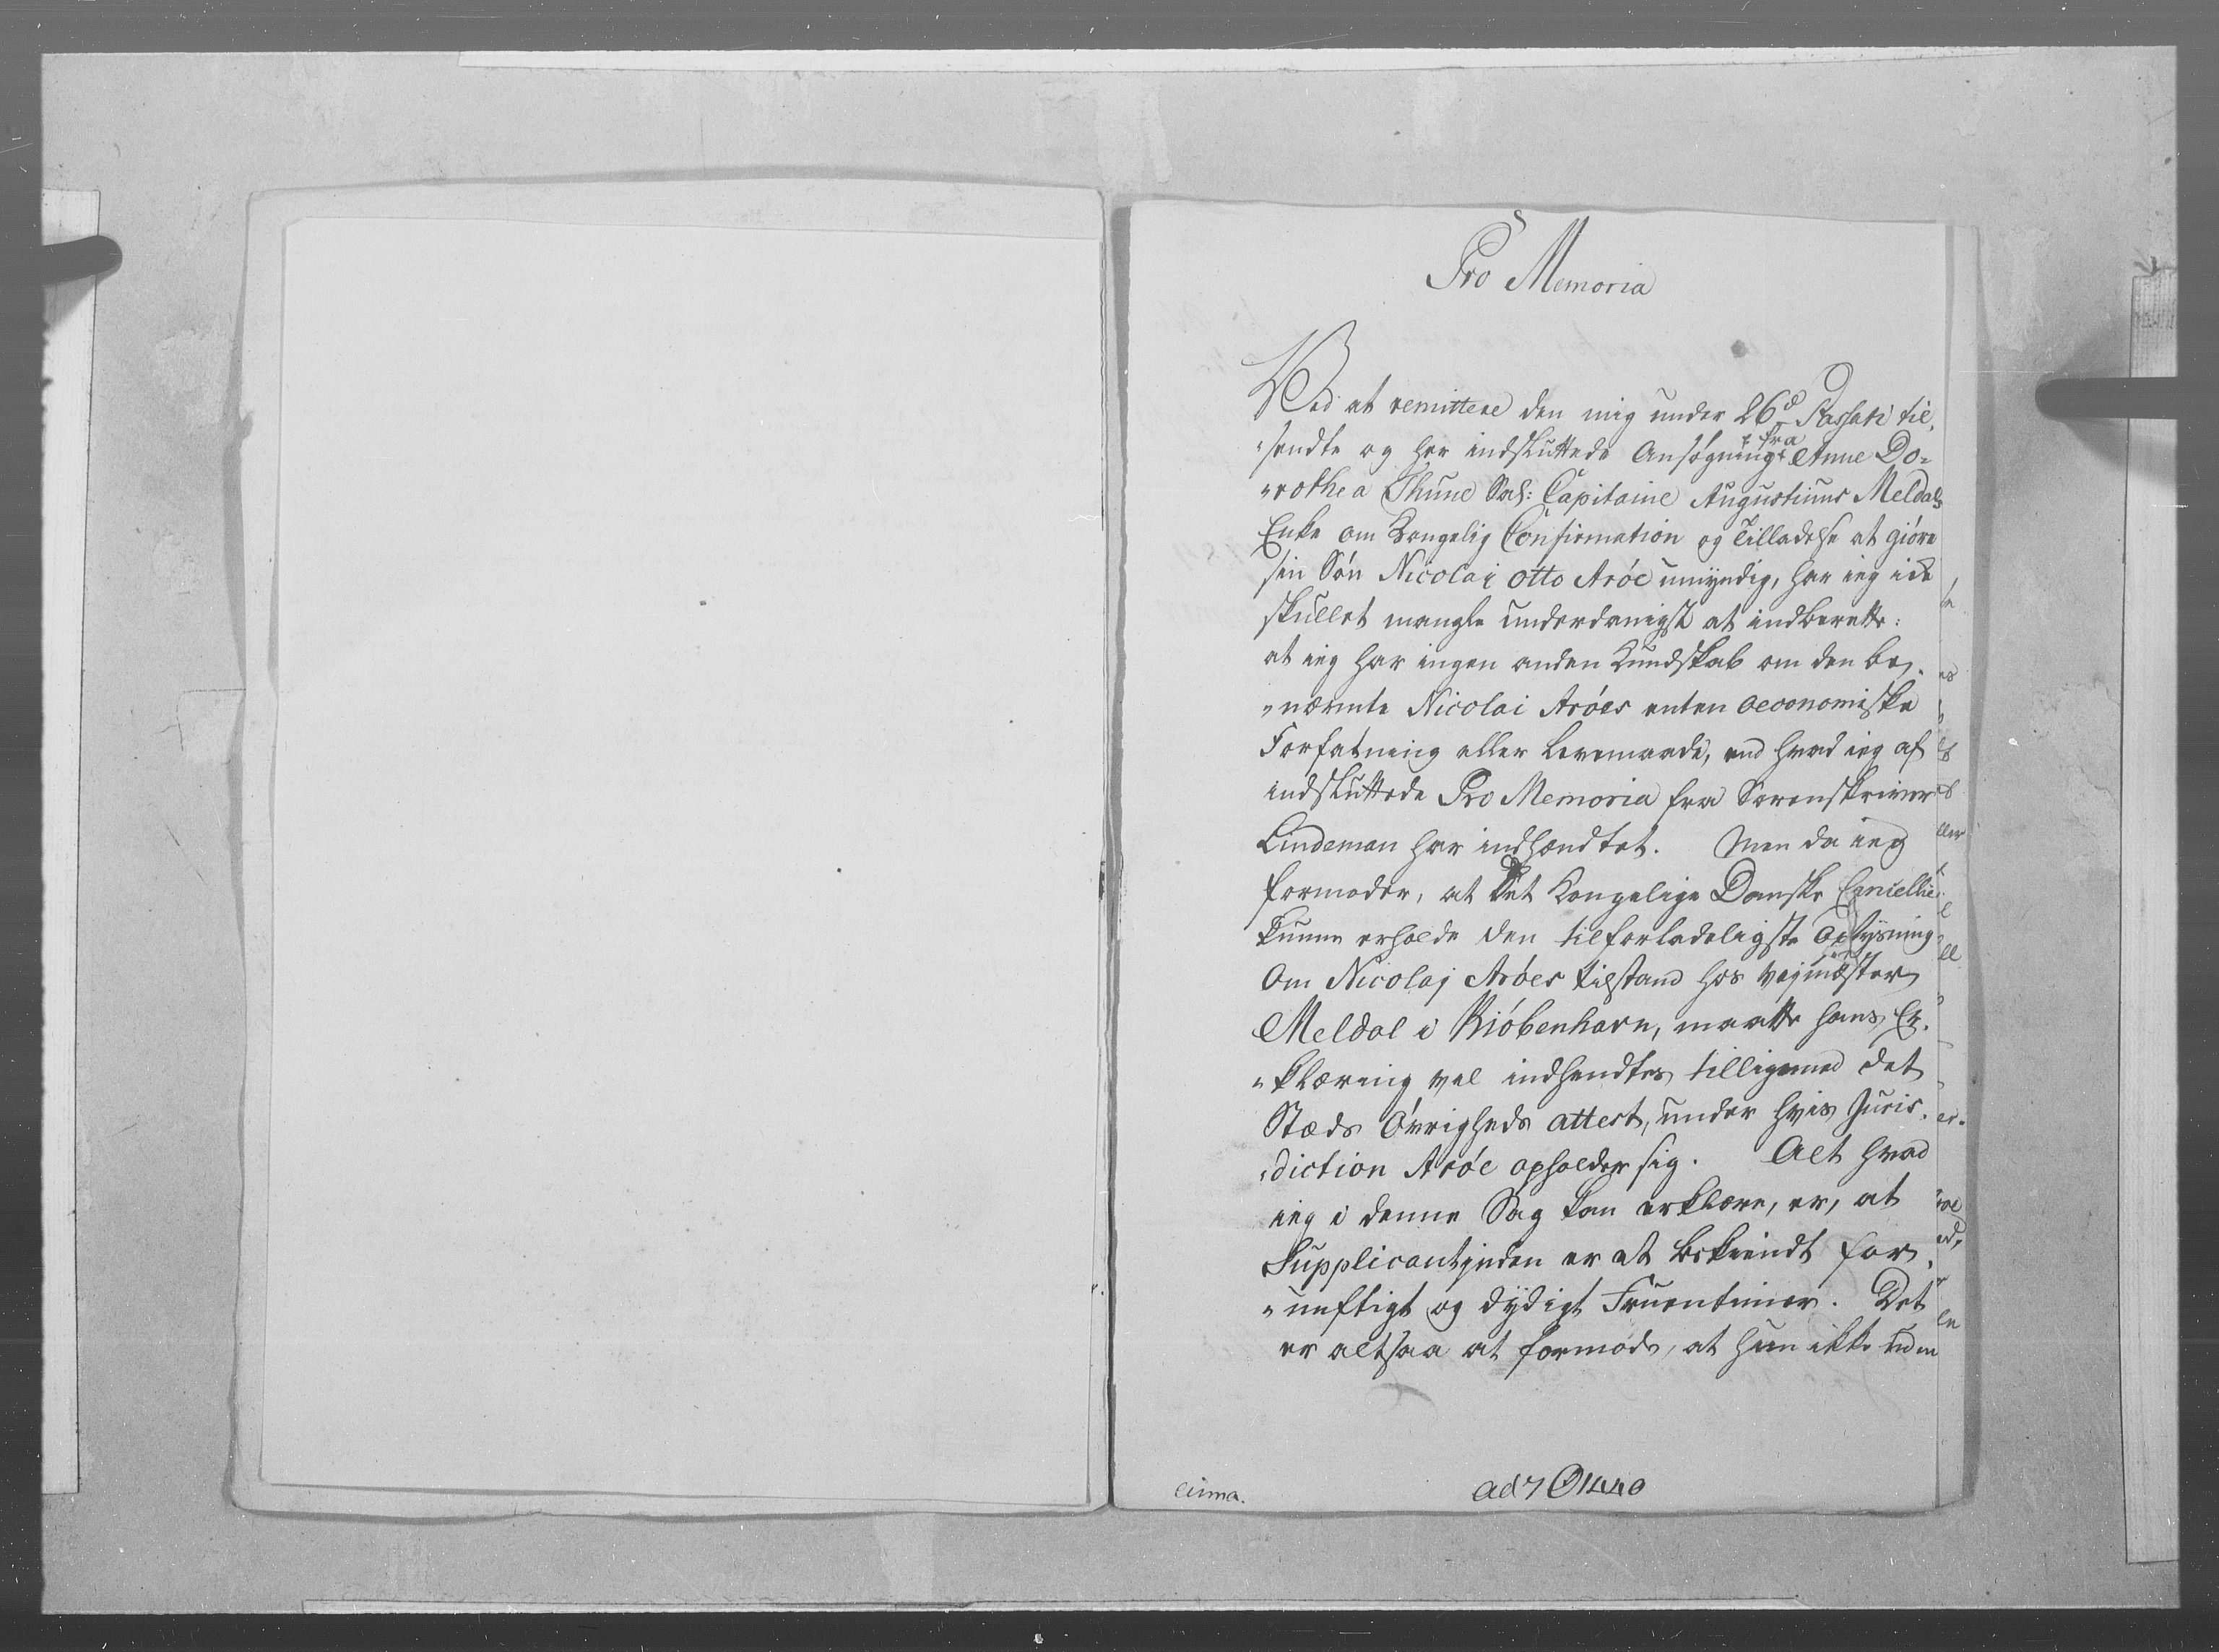 Pro Memoria
Ved at remittere den mig under 26de Passati til,
"sendte og her indsluttede Ansøgning fra Anne Do=
"rothea Thune Sal: Capitaine Augustinus Meldals
Enke om Kongelig Confirmation og Tilladelse at giøre
sin Søn Nicolai Otto Arøe umyndig, har ieg icke
skullet mangle underdanigst at indberette:
at ieg har ingen anden Kundskab om den be,
"nævnte Nicolai Arøes enten oeconomiske
Forfatning eller Levemaade, end hvad ieg af
indsluttede Pro Memoria fra Sorenskriver
Lindeman har indhændtet. Men da ieg
formoder, at Det Kongelige Danske Cancellie
kunne erholde den tilforladeligste Oplysning
Om Nicolaj Arøes tilstand hos Vejmester
Meldal i Kiøbenhavn, maatte hans Er,
"klæring vel indhendtes tilligemed det
Stæds Øvrigheds attest, under hvis Juris,
"diction Arøe opholder sig. Alt hvad
ieg i denne Sag kan erklære, er, at
Supplicantinden er et bekiendt for,
"nuftigt og dydigt Fruentimer. Det
er altsaa at formode, at hun ikke uden